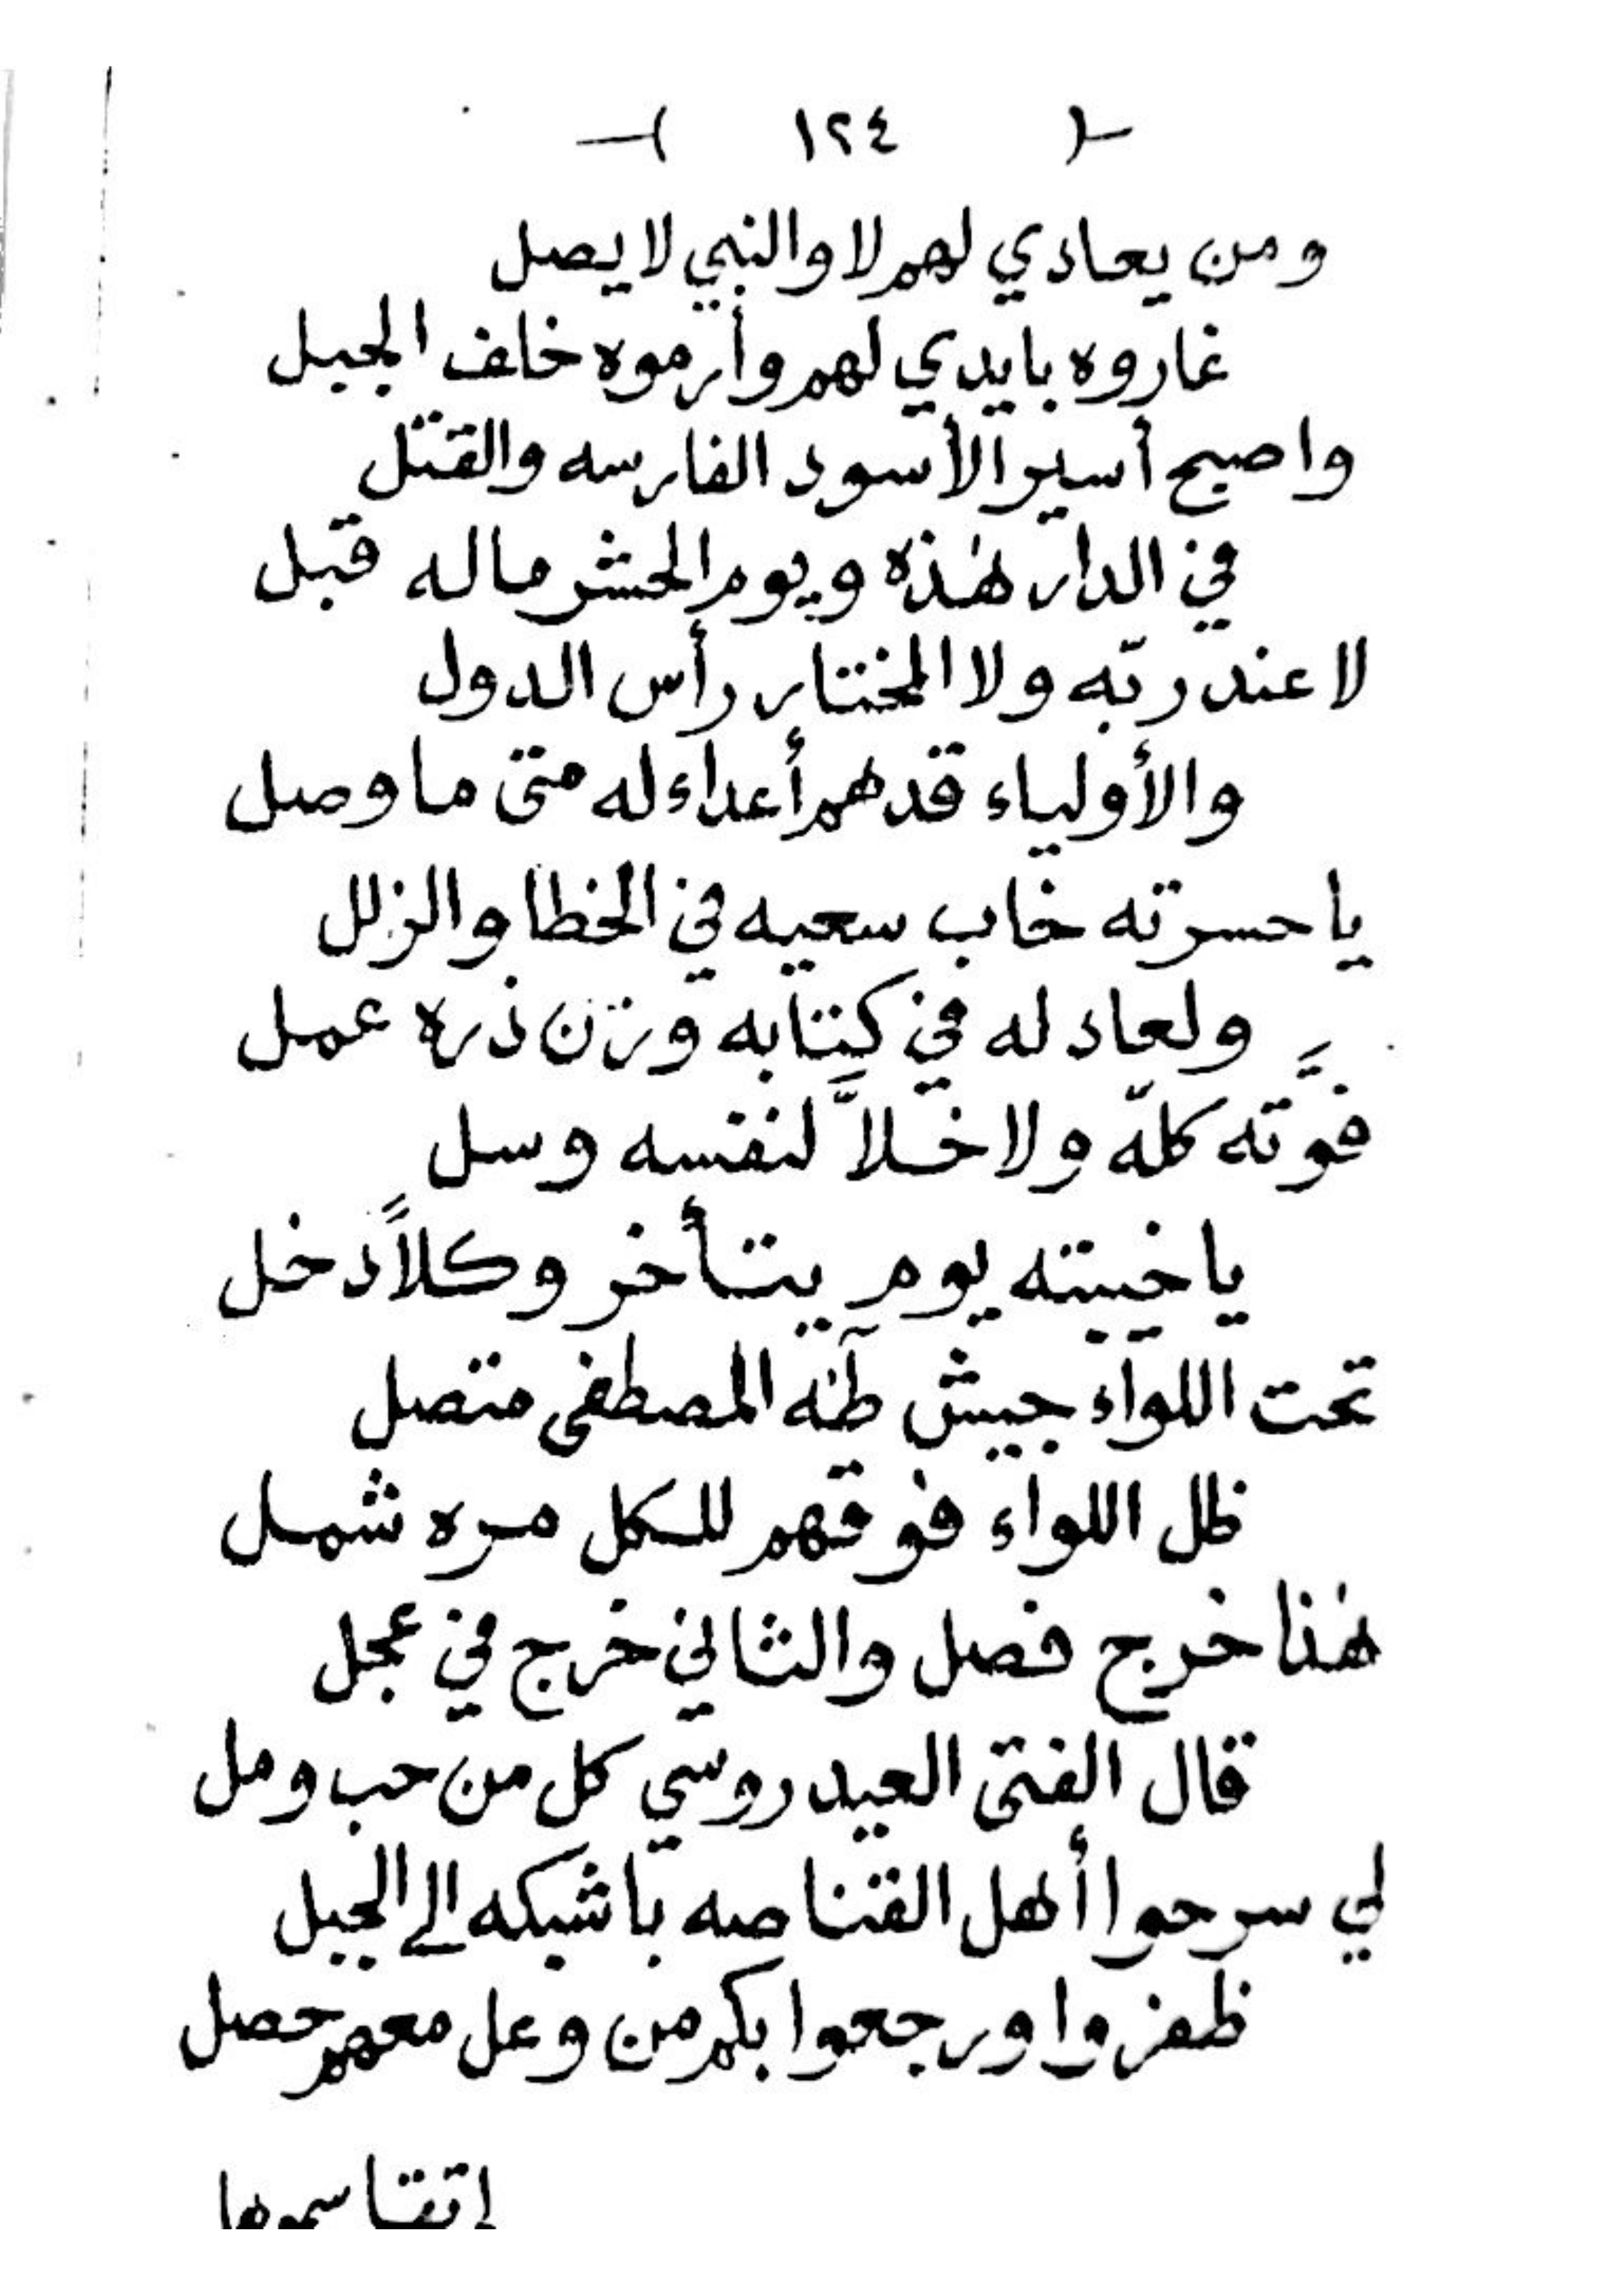 -( ١٢٤ )-
ومن يعادي لهم لا والنبي لا يصل
غاروه بايدي لهم وأرموه خلف الجبل
واصبح أسير الأسود الفارسه والقتل
في الدار هٰذه ويوم الحشر ماله قبل
لا عند ربّه ولا المختار رأس الدول
والأولياء قدهم أعداء له متى ما وصل
يا حسرته خاب سعيه في الخطا والزلل
ولعاد له في كتابه وزن ذره عمل
فوَّته كلّه ولا خلاَّ لنفسه وسل
يا خيبته يوم يتأخر وكلاً دخل
تحت اللواء جيش طٰه المصطفى متصل
ظل اللواء فوقهم للكل مره شمل
هٰذا خرج فصل والثاني خرج في عجل
قال الفتى العيدروسي كل من حب ومل
لي سرحوا أهل القناصه باشبكه إلى الجبل
ظفروا ورجعوا بكم من وعل معهم حصل
اتقاسموها